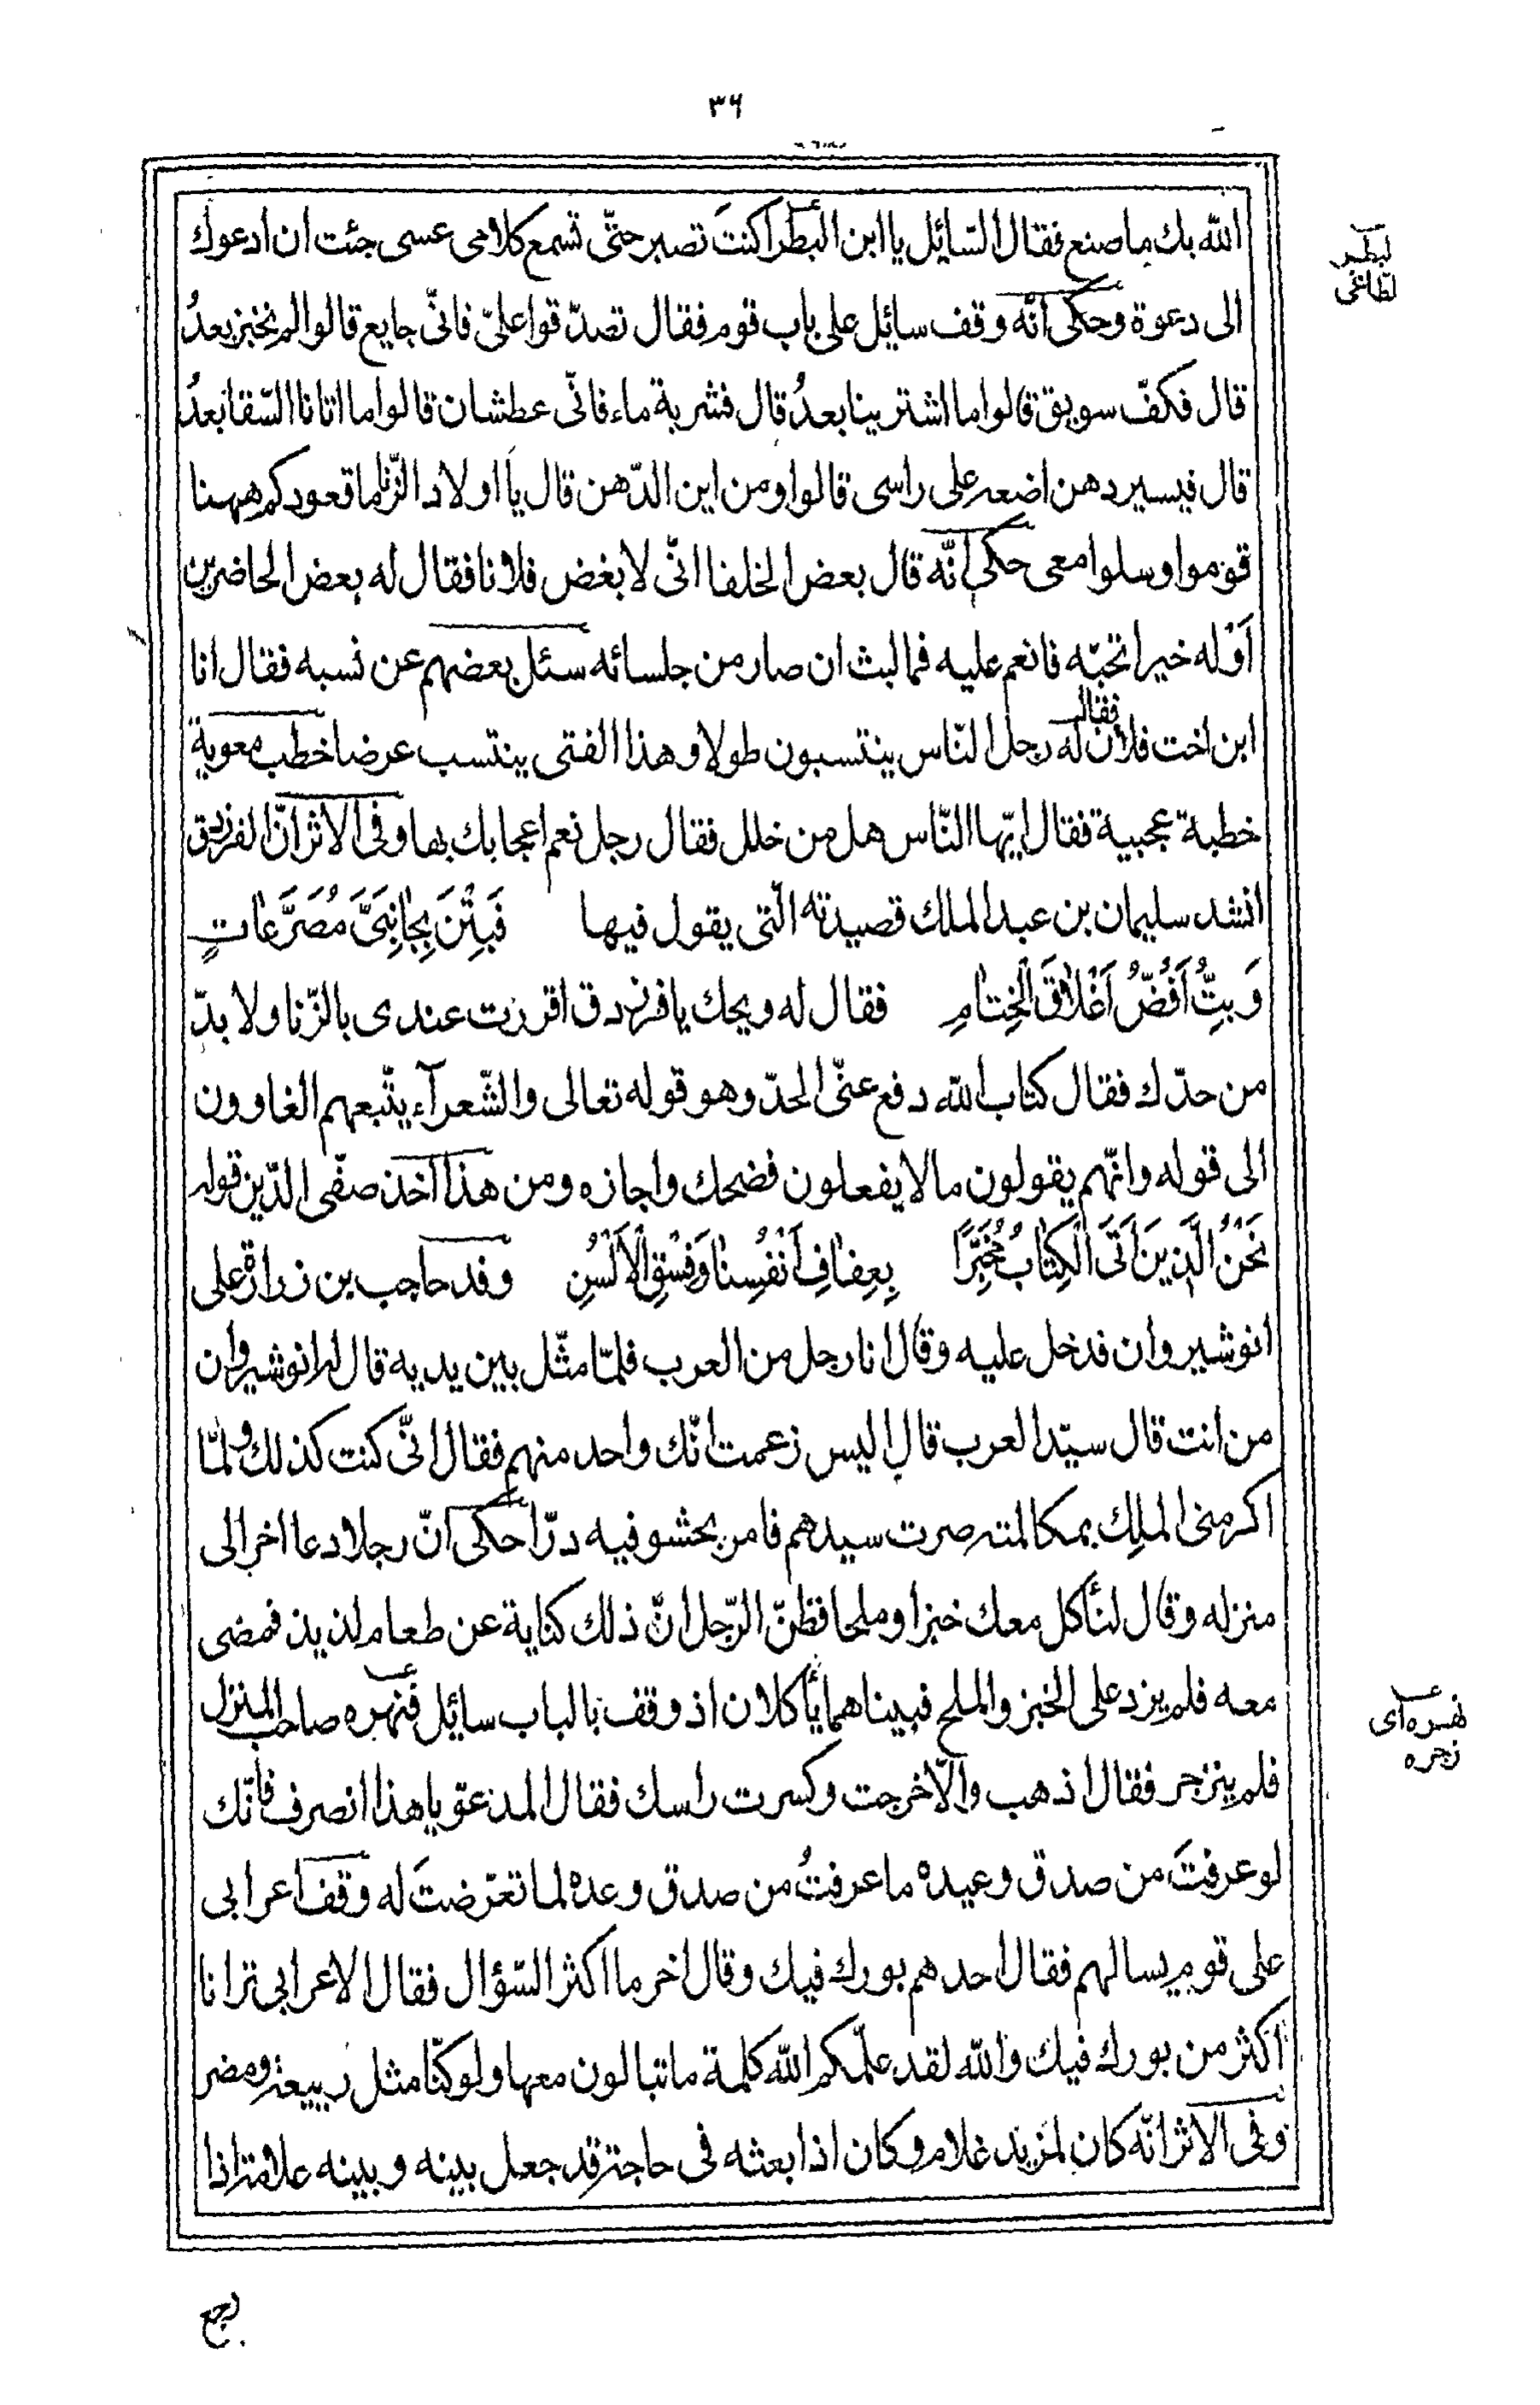 ٣٦
الله بك ما صنع فقال السّايل يا ابن البظرا كنتَ تصبر حتّى تسمع كلامى عسى جئت ان ادعوك
الى دعوة وحكى انّه وقف سايل على باب قوم فقال تصدّقوا علىّ فانّى جايع قالوا لم نخبز بعدُ
قال فكفّ سويق قالوا ما اشترينا بعدُ قال فشربة ماء فانّى عطشان قالوا ما اتانا السّقا بعدُ
قال فيسير دهن اضعه على راسى قالوا ومن اين الدّهن قال يا اولاد الزّنا ما قعودكم ههنا
قوموا وسلوا معى حكى انّه قال بعض الخلفا انّى لا بغض فلانا فقال له بعض الحاضرين
اَوْله خيرا تحبّه فانعم عليه فما لبث ان صار من جلسائه سئل بعضهم عن نسبه فقال انا
ابن اخت فلان فقال له رجل النّاس ينتسبون طولا وهذا الفتى ينتسب عرضا خطب معوية
خطبة عجيبة فقال ايّها النّاس هل من خلل فقال رجل نعم اعجابك بها وفى الاثر انّ الفرزدق
انشد سليمان بن عبد الملك قصيدته الّتى يقول فيها فَبِتْنَ بِجانِبَىَّ مُصَرَّعاتٍ
وَبِتُّ اَفُضُّ اَغْلاقَ الْخِتامِ فقال له ويحك يا فرزدق اقررت عندى بالزّنا ولا بدّ
من حدّك فقال كتاب الله دفع عنّى الحدّ وهو قوله تعالى والشّعرآء يتّبعهم الغاوون
الى قوله وانّهم يقولون ما لا يفعلون فضحك واجازه ومن هذا اخذ صفّى الدّين قوله
نَحْنُ الَّذينَ اَتَى الْكِتابُ مُخَبِّرًا بِعِفافِ اَنْفُسِنا وَفِسْقِ الْاَلْسُنِ وفد حاجب بن زرارة على
انوشيروان فدخل عليه وقال انا رجل من العرب فلمّا مثّل بين يديه قال له انوشيروان
من انت قال سيّد العرب قال اليس زعمت انّك واحد منهم فقال انّى كنت كذلك ولمّا
اكرمنى الملِك بمكالمته صرت سيدهم فامر بحشو فيه درّا حكى انّ رجلا دعا اخر الى
منزله وقال لنأكل معك خبزا وملحا فظنّ الرّجل انّ ذلك كناية عن طعام لذيذ فمضى
معه فلم يزد على الخبز والملح فبينا هما يأكلان اذ وقف بالباب سايل فنهره صاحب المنزل
فلم ينزجر فقال اذهب والّا خرجت وكسرت راسك فقال المدعوّ يا هذا انصرف فانّك
لو عرفتَ من صدق وعيده ما عرفتُ من صدق وعده لما تعرّضتَ له وقف اعرابى
على قوم يسالهم فقال احدهم بورك فيك وقال اخر ما اكثر السّؤال فقال الاعرابى ترانا
اكثر من بورك فيك والله لقد علّمكم الله كلمة ما تبالون معها ولو كنّا مثل ربيعة ومضر
وفى الاثر انّه كان لمزيد غلام وكان اذا بعثه فى حاجة قد جعل بينه وبينه علامة اذا
نهره اى
زجره
رجع